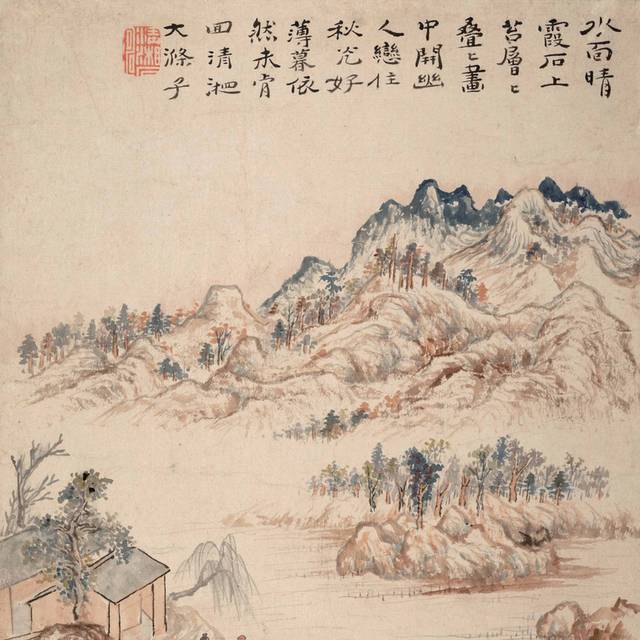 水面晴
霞石上
苔層〻
疊〻畫
中開幽
人戀住
秋光好
薄暮依
然未肯
回清湘
大滌子